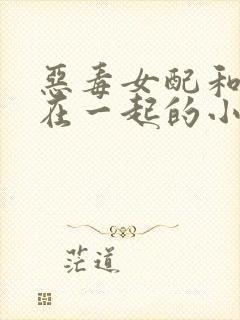 恶毒女配和
在一起的小
茫道